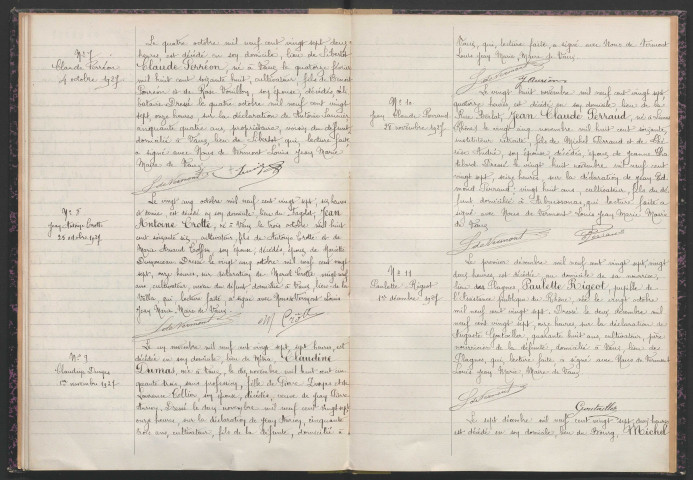 N° 7
Claude Perréon
4 octobre 1927
Le quatre octobre mil neuf cent vingt sept, deux
heures, est décédé en son domicile, lieu de Siberlot
Claude Perréon, né à Vaux, le quatorze février
mil huit cent soixante huit, cultivateur, fils de Benoit
Perréon et de Rose Vouillon, son épouse, décédés, célibataire.
Dressé le quatre octobre mil neuf cent vingt
sept, onze heures, sur la déclaration de Antoine
cinquante quatre ans, propriétaire, voisin du défunt
domicilié à Vaux, lieu de Siberlot qui, lecture faite
a signé avec Nous de Vermont Louis Jean Marie
Maire de Vaux.
L. de Vermont
N° 8
Jean Antoine Crotte
25 octobre 1927
Le vingt cinq octobre mil neuf cent vingt sept, six heures
et demie, est décédé en son domicile, lieu du Jean
Antoine Crotte, né à Vaux le trois octobre mil huit
cent soixante six, cultivateur, fils de Antoine Crotte et de
Marie son épouse, décédés, époux de
Dressé le vingt cinq octobre mil neuf cent vingt
sept, onze heures, sur déclaration de Marcel Crotte vingt
ans, cultivateur, neveu du défunt domicilié à Vaux, lieu de la
qui, lecture faite, a signé avec Nous Vermont Louis
Jean Marie, Maire de Vaux.
L. de Vermont
M Crotte
N° 9
Claudine Dumas
1er novembre 1927
Le un novembre mil neuf cent vingt sept, sept heures, est
décédée en son domicile, lieu de Claudine
Dumas, née à Vaux, le dix novembre mil huit cent cinquante
trois, sans profession, fille de Dumas et de
Laurence son épouse, décédés, veuve de Jean Pierre
Dressé le novembre mil neuf cent vingt sept
onze heures, sur la déclaration de Jean cinquante
trois ans, cultivateur, fils de la défunte, domicilié à
Vaux, qui, lecture faite, a signé avec Nous de Vermont
Louis Jean Marie, Maire de Vaux.
L. de Vermont
N° 10
Jean Claude Perraud
28 novembre 1927
Le vingt huit novembre mil neuf cent vingt sept
quatorze heures, est décédé en son domicile lieu de la
Jean Claude Perraud, né à
Rhône, le vingt cinq novembre mil huit cent soixante,
instituteur retraité, fils de Michel Perraud et de
son épouse, décédés, époux de Jeanne
Dressé le vingt huit novembre mil neuf cent
vingt sept, seize heures, sur la déclaration de Jean Edmond
Perraud, vingt huit ans, cultivateur, fils du défunt
domicilié à qui, lecture faite a
signé avec Nous de Vermont Louis Jean Marie Maire
de Vaux.
L. de Vermont
Perraud
N° 11
Paulette Rigeot
1er décembre 1927
Le premier décembre mil neuf cent vingt sept, vingt
deux heures, est décédée au domicile de sa nourrice,
lieu des Plagnes, Paulette Rigeot, pupille de
l'Assistance publique du Rhône, née le vingt octobre
mil neuf cent vingt sept. Dressé le deux décembre mil
neuf cent vingt sept, onze heures, sur la déclaration de
Auguste quarante huit ans, cultivateur, père
nourricier de la défunte, domicilié à Vaux, lieu des
Plagnes, qui, lecture faite a signé avec Nous de Vermont
Louis Jean Marie, Maire de Vaux.
L. de Vermont
Le sept décembre mil neuf cent vingt sept, cinq heures
est décédé en son domicile, lieu du Bourg, Michel